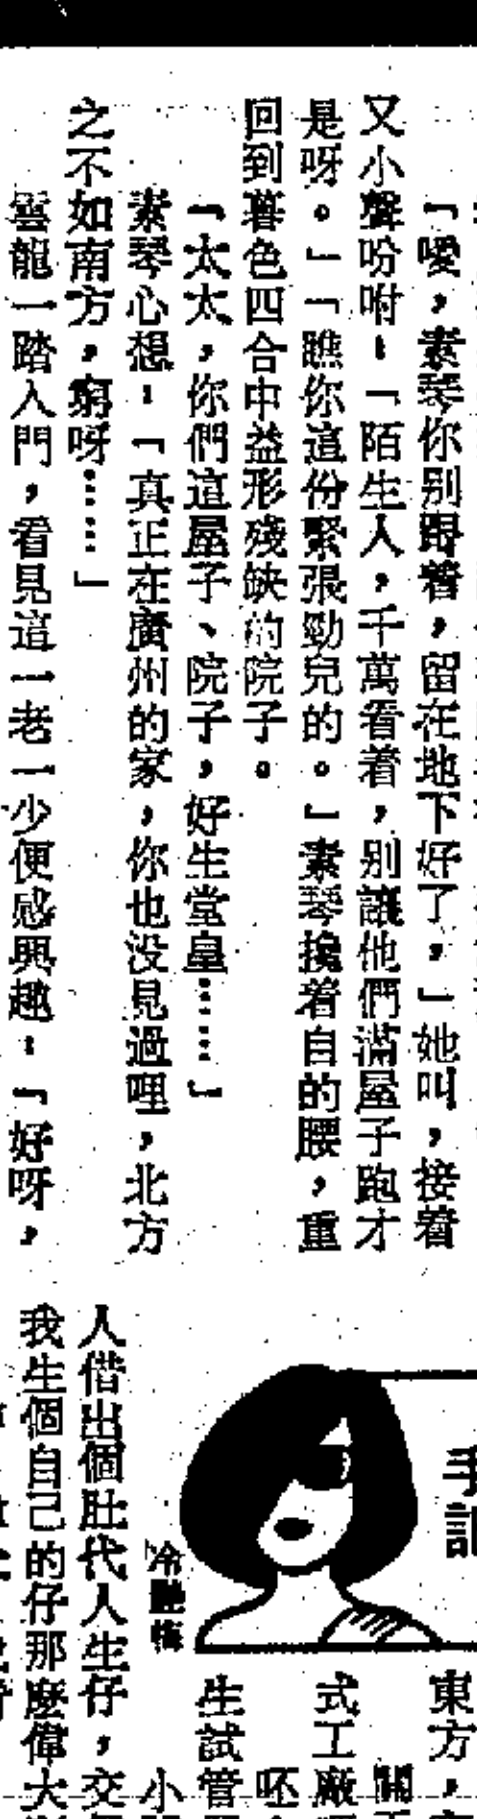 「噯，素琴你別跟着，留在地下好了，」她叫，接着
又小聲吩咐：「陌生人，千萬看着，別讓他們滿屋子跑才
是呀。」「瞧你這份緊張勁兒的。」素琴攙着自的腰，重
回到暮色四合中益形殘缺的院子。
「太太，你們這屋子、院子，好生堂皇……」
素琴心想：「真正在廣州的家，你也没見過哩，北方
之不如南方，窮呀……」
雲龍一踏入門，看見這一老一少便感興趣：「好呀，
手記
東方，
開
式工廠
呸
生試管
小
冷
人借出個肚代人生仔，交
我生個自己的仔那麽偉大